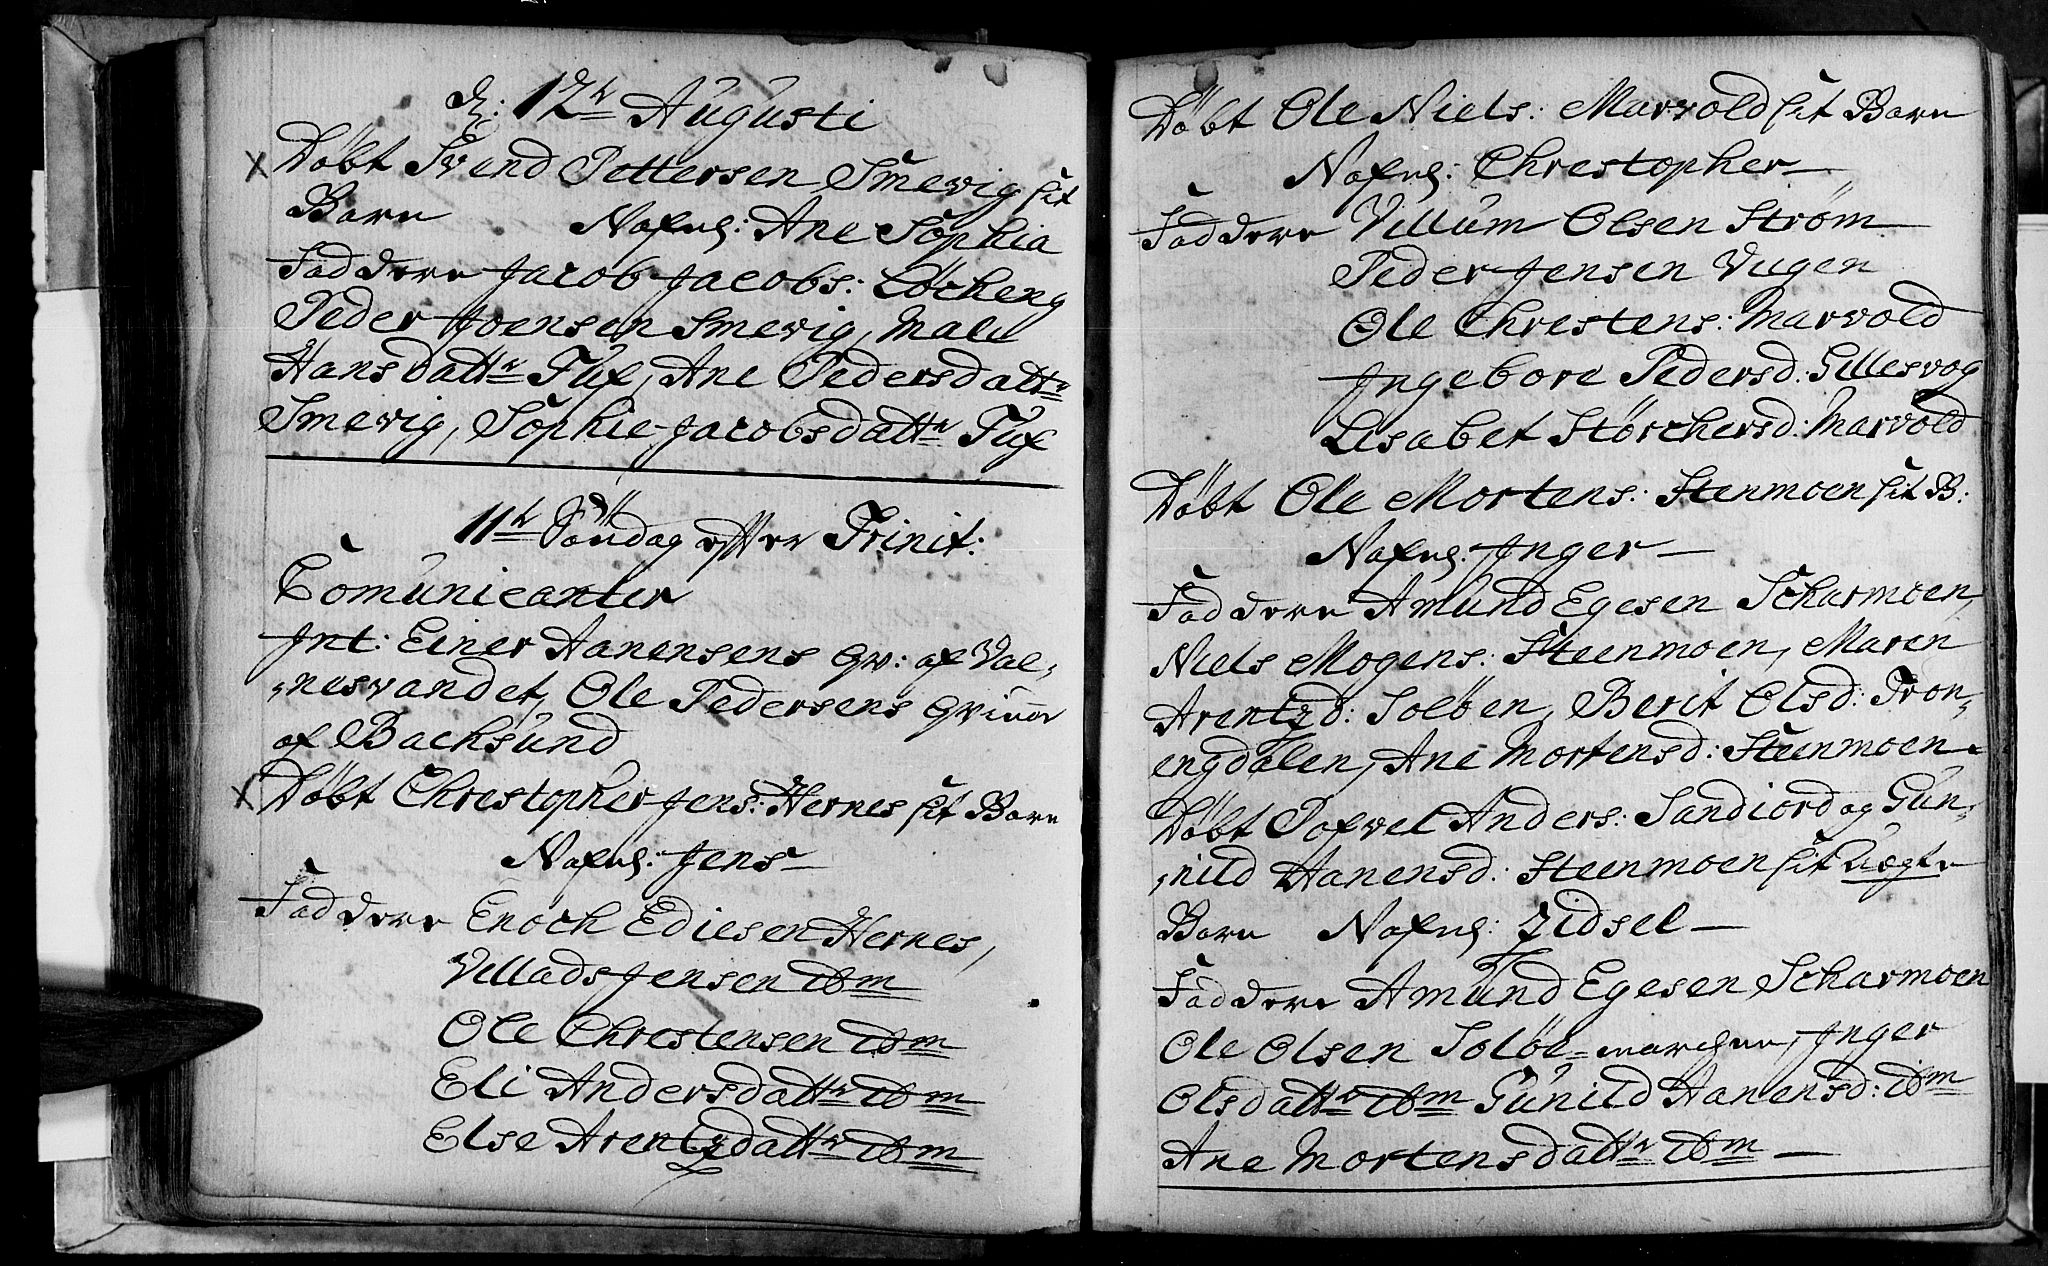 d: 12te Augusti
Døbt Svend Pettersen Smevig sit
Barn Nafnl: Ane Sophia
Faddere Jacob Jacobs: Løcheng
Peder Joensen Smevig, Male
Hansdattr Tuf, Ane Pedersdattr
Smevig, Sophie Jacobsdattr Tuf
11te Søndag effter Trinit:
Comunicanter
Int: Einer Hanensens qv: af Val-
nesvandet, Ole Pedersens qvinde
af Backsund
Døbt Chrestopher Jens: Hernes sit Barn
Nafnl: Jens
Faddere Enoch Ediesen Hernes,
Villads Jensen ibm
Ole Chrestensen ibm
Eli Andersdattr ibm
Else Arentzdattr ibm
Døbt Ole Niels: Marvold sit Barn
Nafnl: Chrestopher
Faddere Villum Olsen Strøm
Peder Jensen Vugen
Ole Chrestens: Marvold
Ingebore Pedersd: Gillesvog
Lisabet Størchersd: Marvold
Døbt Ole Mortens: Steenmoen sit B:
Nafnl: Inger
Faddere Amund Egesen Scharmoen,
Niels Mogens: Steenmoen, Maren
Arentzd: Soløen, Berit Olsd: Tron-
engdalen, Ane Mortensd: Steenmoen
Døbt Pofvel Anders: Sandiord og Gun-
nild Hanensd: Steenmoen sit Uægte
Barn Nafnl: Zidsel
Faddere Amund Egesen Scharmoen
Ole Olsen Soløe-marchen, Inger
Olsdattr ibm Gunild Hanensd: ibm
Ane Mortensdattr ibm